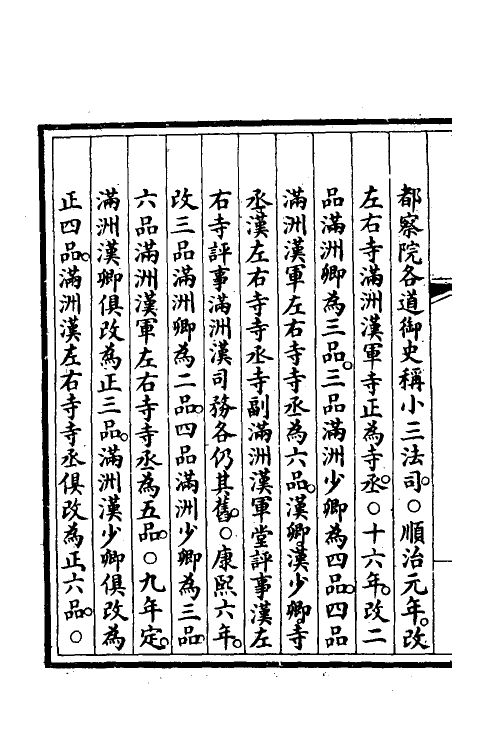 都察院各道御史稱小三法司。○順治元年。改
左右寺滿洲漢軍寺正為寺丞。○十六年。改二
品滿洲卿為三品。三品滿洲少卿為四品。四品
滿洲漢軍左右寺寺丞為六品。漢卿。漢少卿。寺
丞。漢左右寺寺丞寺副滿洲漢軍堂評事漢左
右寺評事滿洲漢司務各仍其舊。○康熙六年。
改三品滿洲卿為二品。四品滿洲少卿為三品。
六品滿洲漢軍左右寺寺丞為五品。○九年定。
滿洲漢卿俱改為正三品。滿洲漢少卿俱改為
正四品。滿洲漢左右寺寺丞俱改為正六品。○